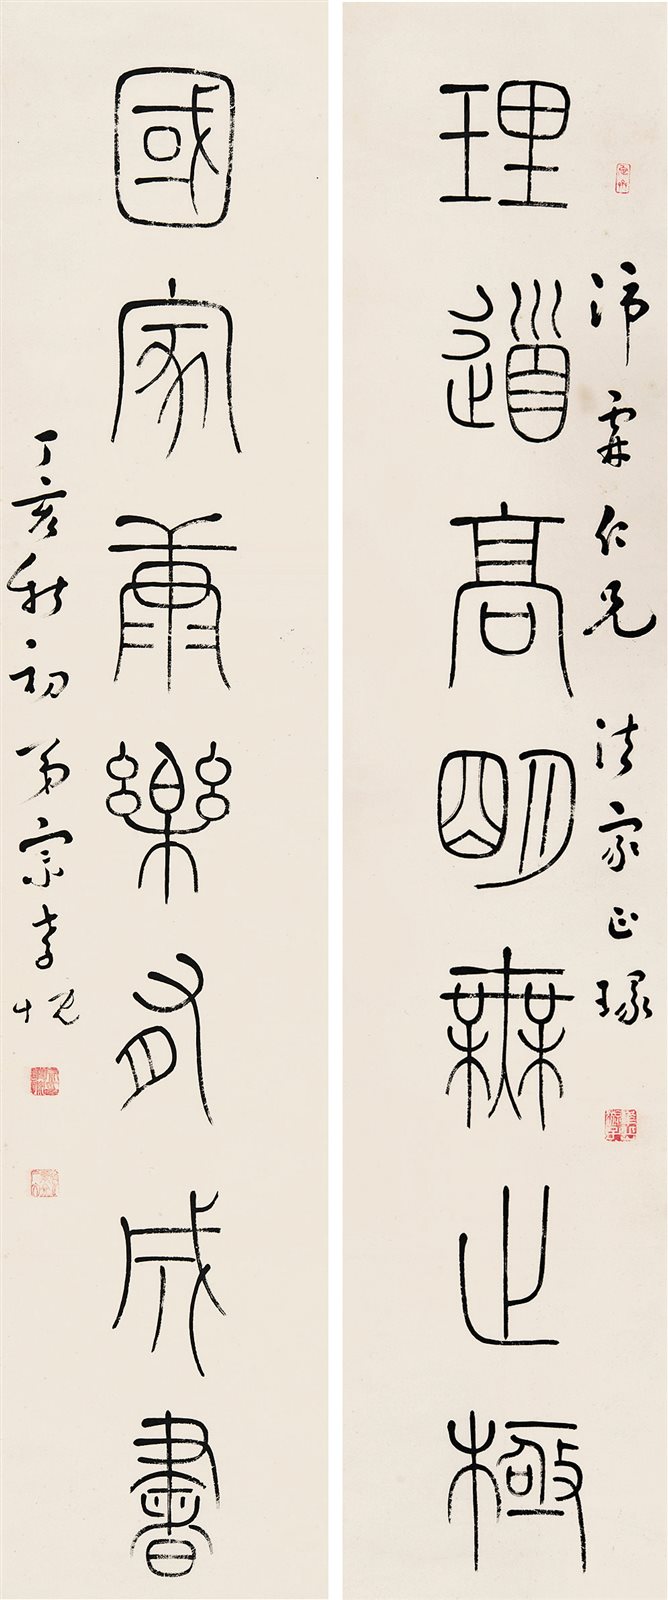 沛霖仁兄 法家正瑑
理道高明無止極
國家康樂有成書
丁亥秋初 弟宗孝忱